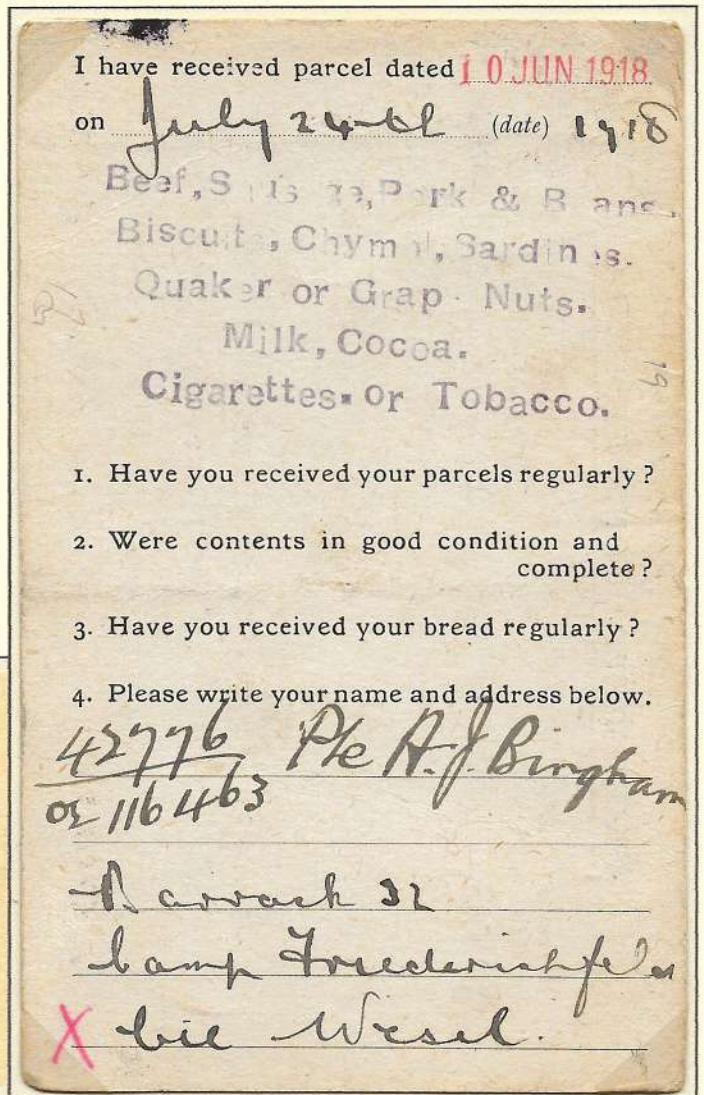 I have received parcel dated 10 JUN 1918
on July 24th (date) 1918
Beef, Sausage, Pork & Beans.
Biscuits, Chymol, Sardines.
Quaker or Grape Nuts.
Milk, Cocoa.
Cigarettes. or Tobacco.
19
1. Have you received your parcels regularly ?
2. Were contents in good condition and
complete ?
3. Have you received your bread regularly ?
4. Please write your name and address below.
42776 Pte A. J. Bingham
116463
Barrack 32
Camp Friederichfeld
X bie Wesel.